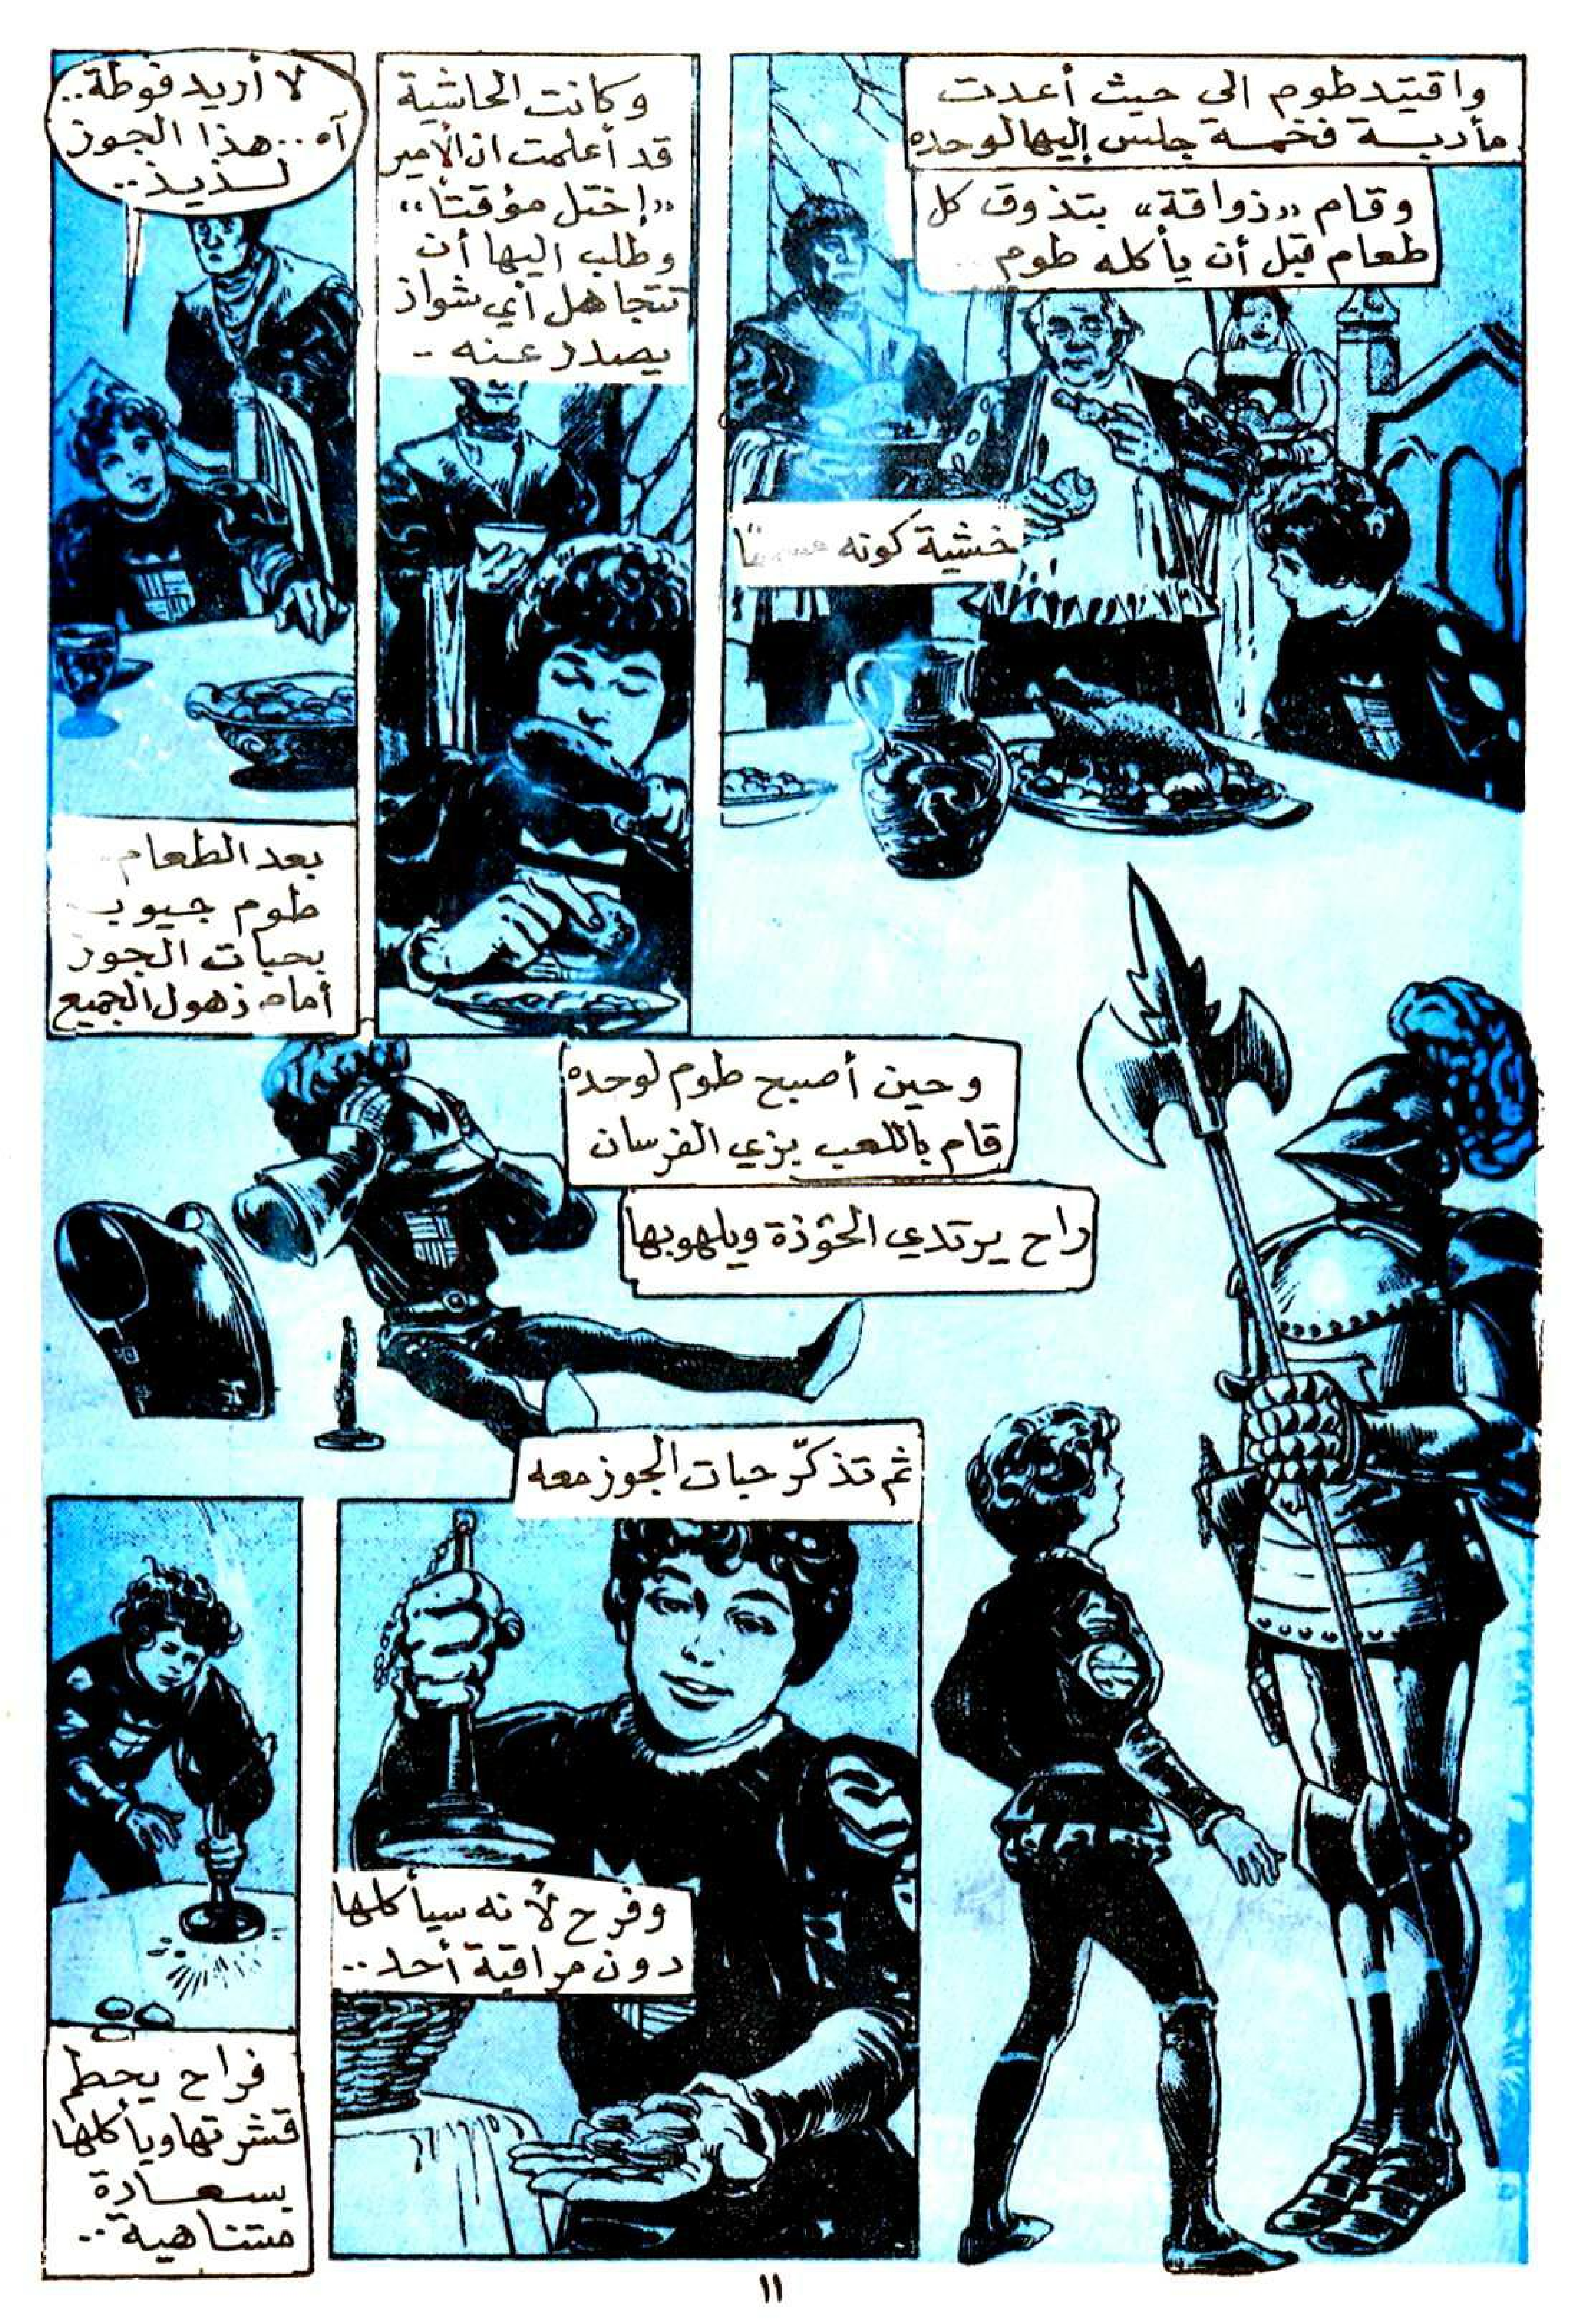 واقتيد طوم الى حيث أعدت
مأدبة فخمة جلس إليها لوحده
وقام «ذواقة» بتذوق كل
طعام قبل أن يأكله طوم
خشية كونه
وكانت الحاشية
قد أعلمت ان الأمير
«إختل مؤقتاً»
وطلب اليها أن
تتجاهل أي شواذ
يصدر عنه -
لا أريد فوطة..
آه... هذا الجوز
لـذيذ..
بعد الطعام
طوم جيوب
بحبات الجوز
أمام ذهول الجميع
وحين أصبح طوم لوحده
قام باللعب بزي الفرسان
راح يرتدي الخوذة ويلهو بها
ثم تذكّر حبات الجوز معه
وفرح لأنه سيأكلها
دون مراقبة أحد..
فراح يحطم
قشرتها ويأكلها
بسعـادة
متناهية..
١١